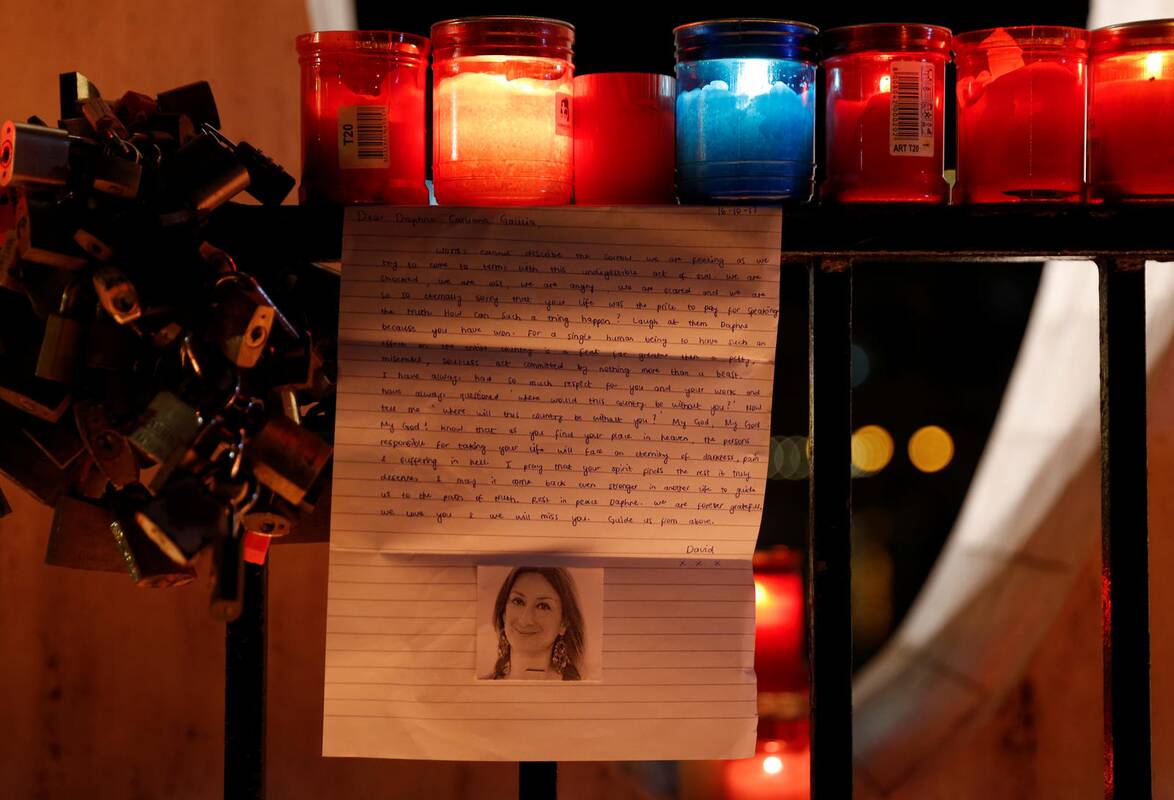 T20
ART T20
Dear Daphne Caruana Galizia, 16-10-17
Words cannot describe the sorrow we are feeling as we
try to come to terms with this undigestible act of evil. We are
shocked, we are lost, we are angry, we are scared and we are
so so eternally sorry that your life was the price to pay for speaking
the truth. How can such a thing happen? Laugh at them Daphne
because you have won. For a single human being to have such an
effect on an entire country is a feat far greater than a petty,
miserable, soulless act committed by nothing more than a beast.
I have always had so much respect for you and your work and
have always questioned 'where would this country be without you?' Now
tell me 'where will this country be without you?' My God, My God
My God! Know that as you find your place in heaven, the persons
responsible for taking your life will face an eternity of darkness, pain
& suffering in hell. I pray that your spirit finds the rest it truly
deserves & may it come back even stronger in another life to guide
us to the path of truth. Rest in peace Daphne. We are forever grateful,
we love you & we will miss you. Guide us from above.
David
x x x